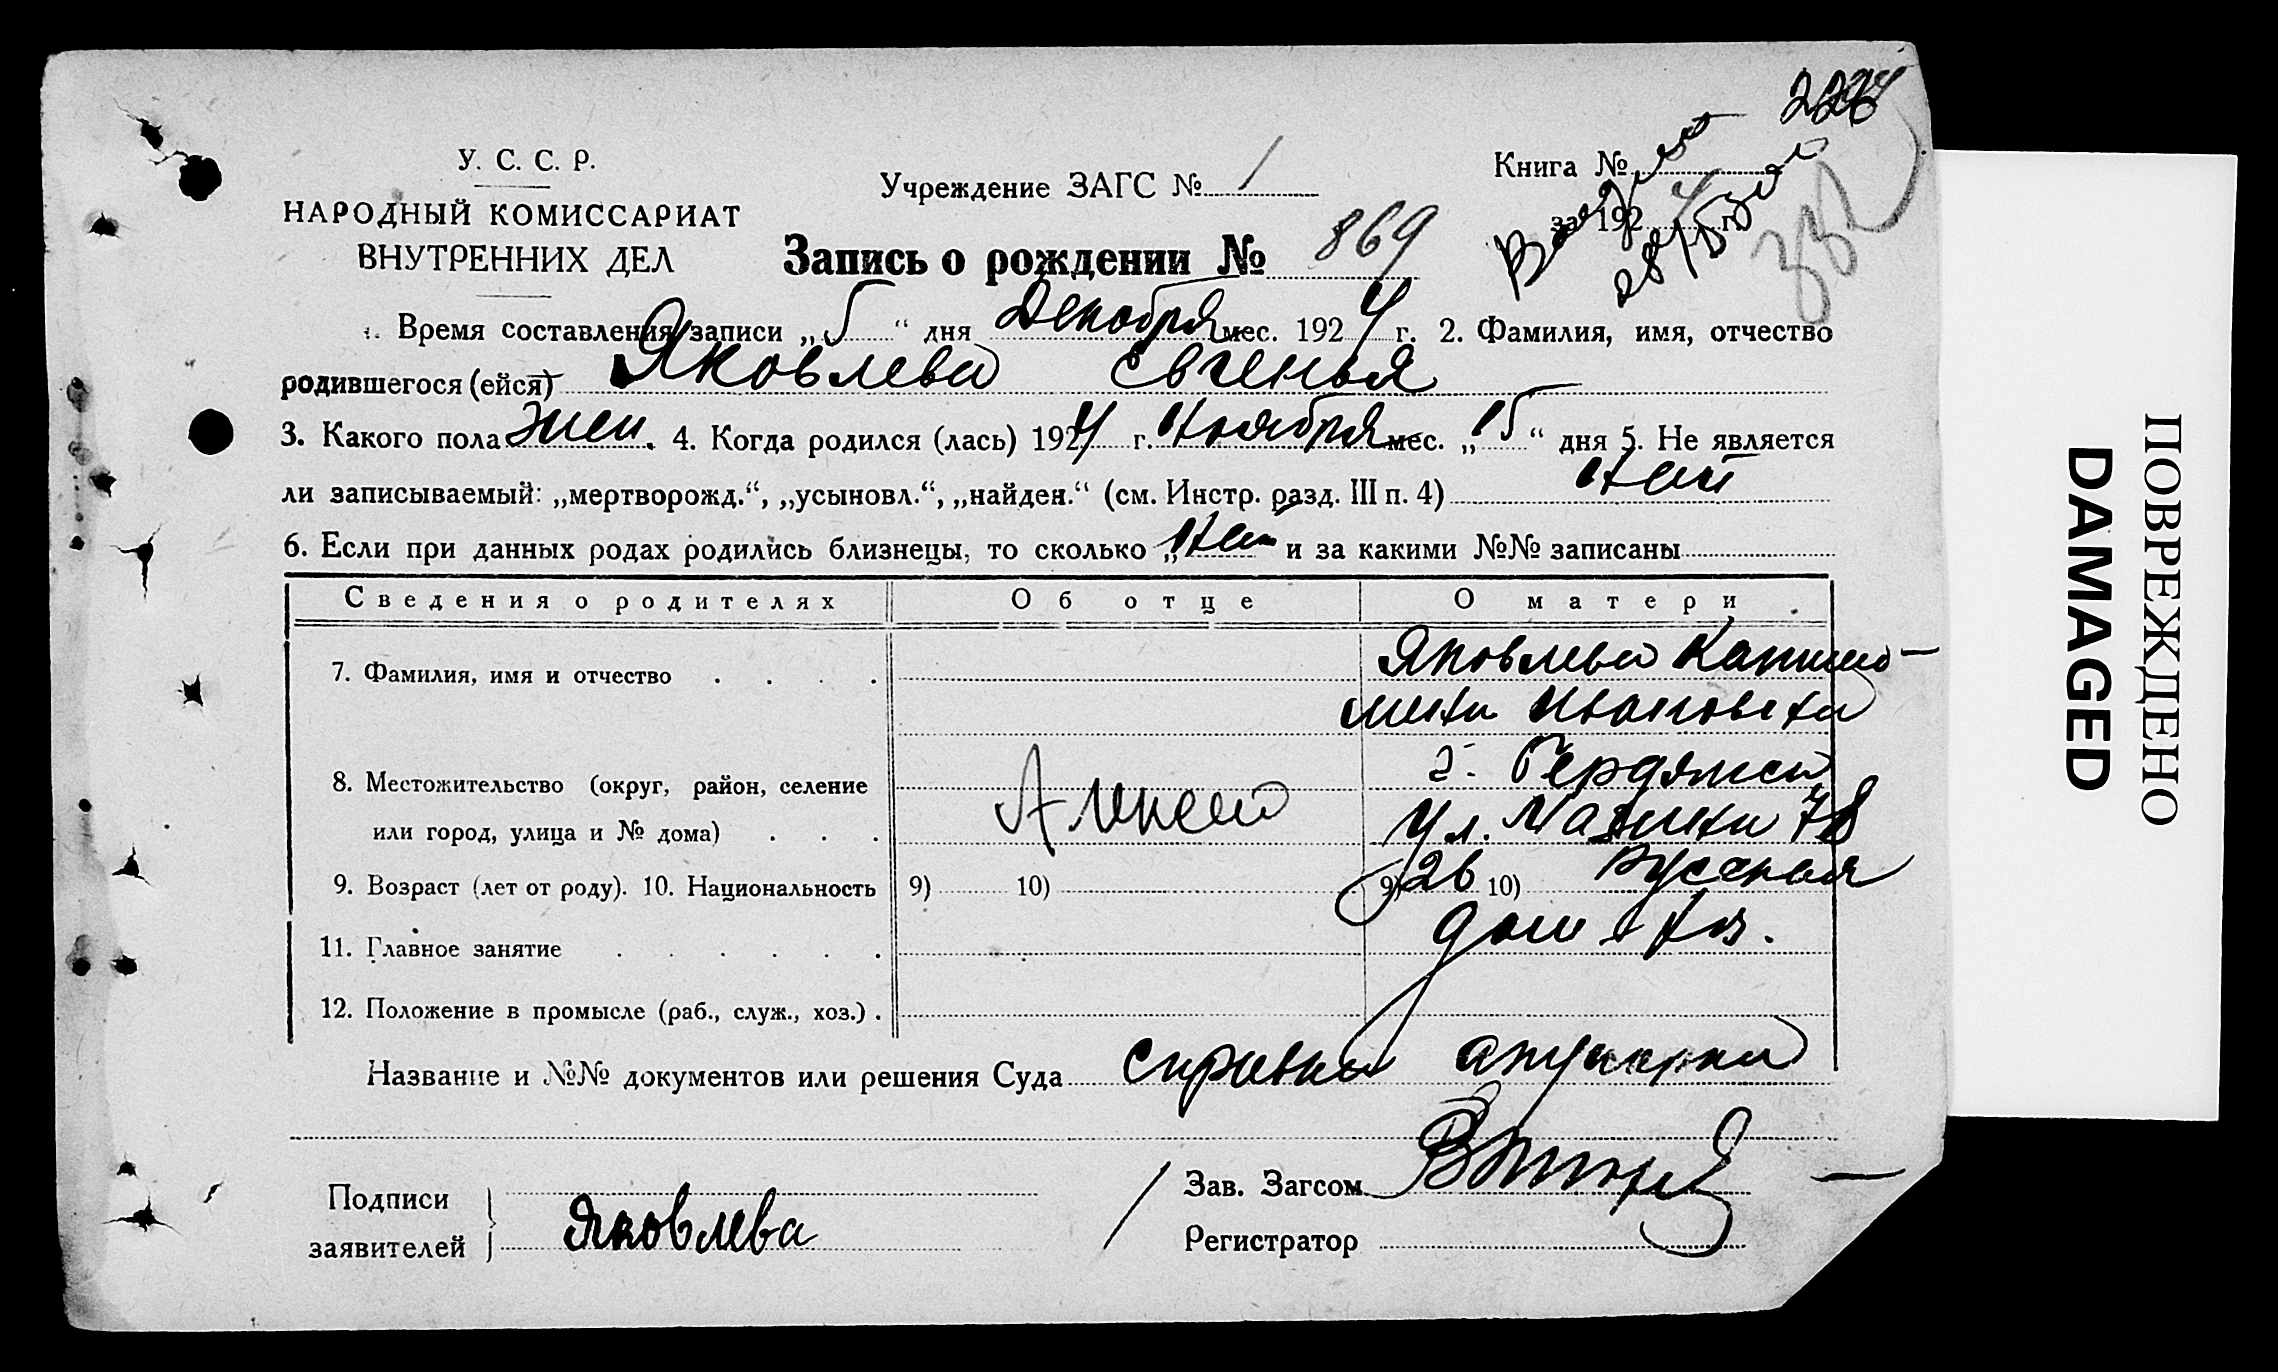 У. С. С. Р.
НАРОДНЫЙ КОМИССАРИАТ
ВНУТРЕННИХ ДЕЛ
Учреждение ЗАГС № 1
Книга №
за 1924 г.
Запись о рождении № 869
1. Время составления записи „5“ дня Декабря мес. 1924 г. 2. Фамилия, имя, отчество
родившегося (ейся) Яковлева Евгенья
3. Какого пола жен. 4. Когда родился (лась) 1924 г. Ноября мес. „15“ дня 5. Не является
ли записываемый: „мертворожд.“, „усыновл.“, „найден.“ (см. Инстр. разд. III п. 4) Нет
6. Если при данных родах родились близнецы, то сколько „Нет и за какими №№ записаны
Сведения о родителях Об отце О матери
7. Фамилия, имя и отчество Яковлева Капито-
лина Ивановна
8. Местожительство (округ, район, селение г. Бердянск
или город, улица и № дома) ул. 78
9. Возраст (лет от роду). 10. Национальность 9) 10) 9) 26 10) Русская
11. Главное занятие дом. хоз.
12. Положение в промысле (раб., служ., хоз.)
Название и №№ документов или решения Суда справка акушерки
Подписи
заявителей Яковлева
Зав. Загсом
Регистратор
ПОВРЕЖДЕНО
DAMAGED